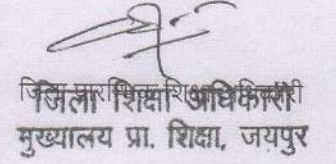 जिला शिक्षा अधिकारी
मुख्यालय प्रा. शिक्षा, जयपुर